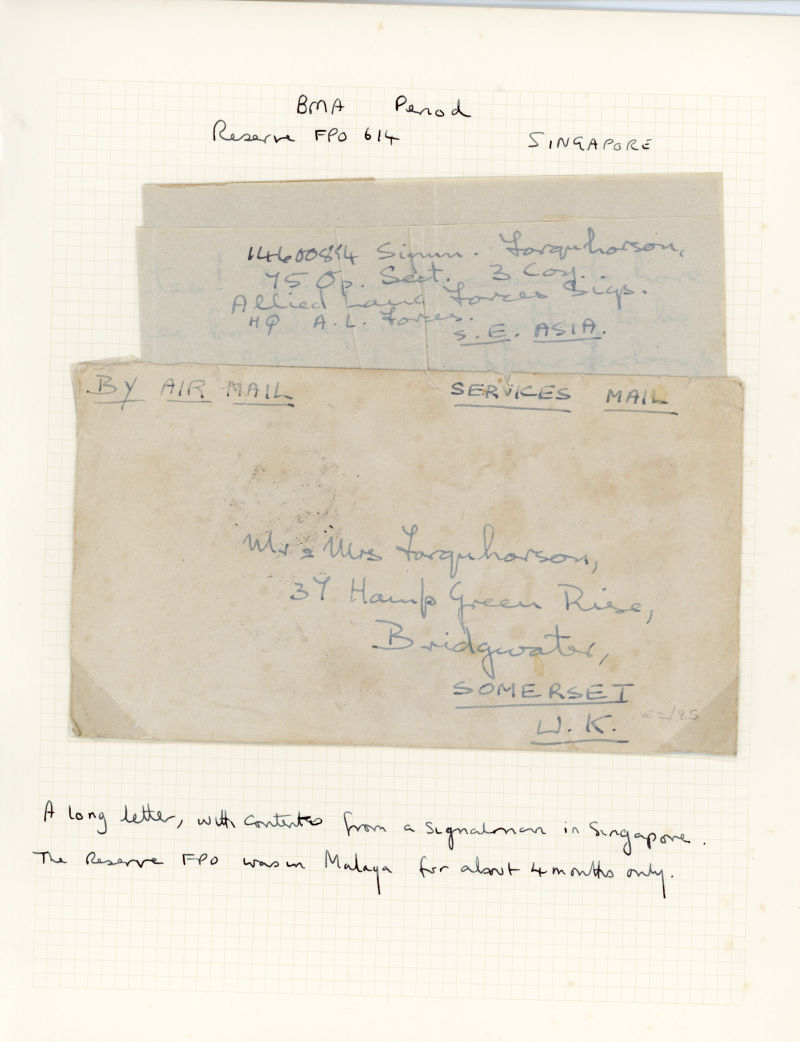 BMA Period
Reserve FPO 614
SINGAPORE
14600894 Signn. Farquharson,
75 Op. Sect. 3 Coy.
Allied Land Forces Sigs.
HQ A. L. Forces.
S. E. ASIA.
BY AIR MAIL
SERVICES MAIL
Mr & Mrs Farquharson,
37 Hamp Green Rise,
Bridgwater,
SOMERSET
U.K.
£2/85
A long letter, with contents from a signalman in Singapore.
The Reserve FPO was in Malaya for about 4 months only.